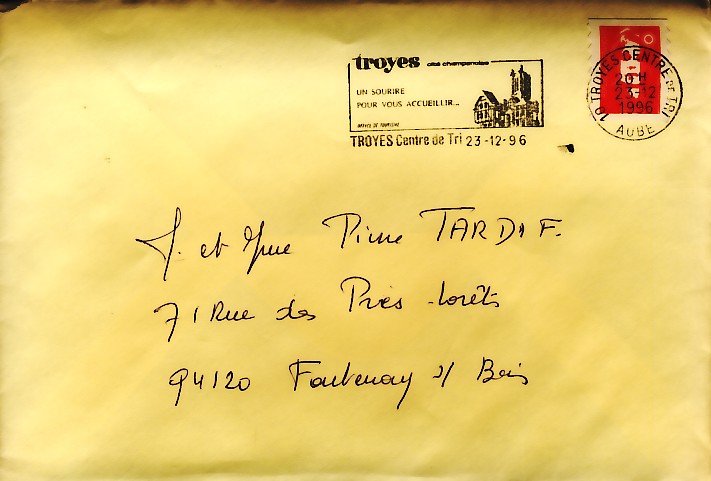 troyes cité champenoise
UN SOURIRE
POUR VOUS ACCUEILLIR...
OFFICE DE TOURISME
TROYES Centre de Tri 23-12-96
10 TROYES CENTRE DE TRI
20 H
23-12
1996
AUBE
M. et Mme Pierre TARDIF.
71 Rue des Prés-Lorêts
94120 Fontenay s/ Bois